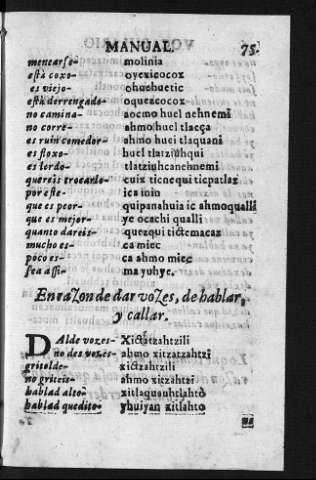 MANUAL. 75.
mencarse- molinia
està coxo- oyexicocox
es viejo- ohuehuetic
està derrengado- oquezcocox
no camina- aocmo huel nehnemi
no corre- ahmo huel tlacça
es ruin comedor- ahmo huei tlaquani
es floxo- huel tlatziuhqui
es lerdo- tlatziuhcanehnemi
quereis trocarle- cuix ticnequi ticpatlaz
por este- ica inin
que es peor- quipanahuia ic ahmoqualli
que es mejor- ye ocachi qualli
quanto dareis- quezqui tictemacaz
mucho es- ca miec
poco es- ca ahmo miec
sea assi- ma yuhye.
En razon de dar vozes, de hablar,
y callar.
DAlde vozes- Xictzahtzili
no des vozes- ahmo xitzatzahtzi
gritolde- xictzahtzili
no griteis- ahmo xitzahtzi
hablad alto- xitlaquauhtlahto
hablad quedito- yhuiyan xitlahto